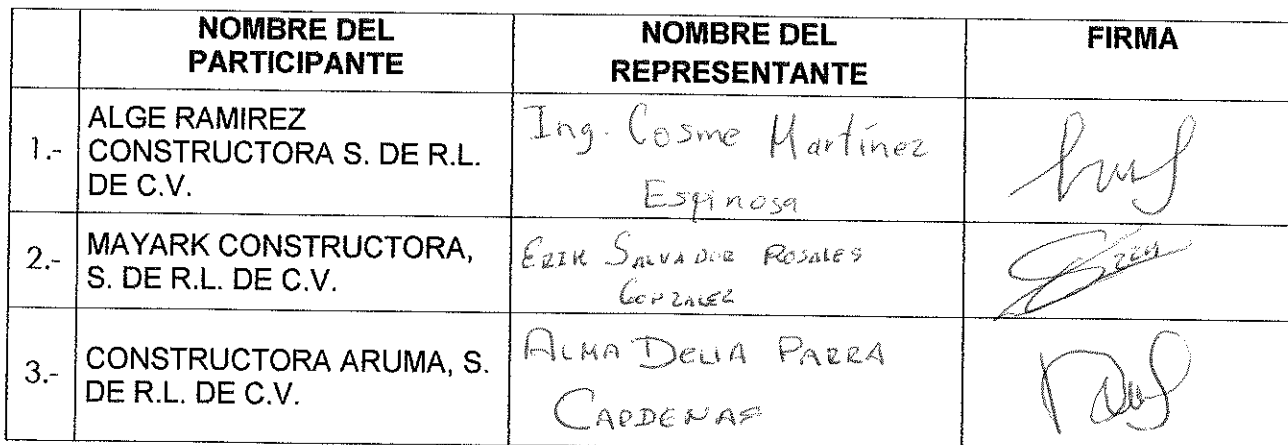 NOMBRE DEL
PARTICIPANTE
NOMBRE DEL
REPRESENTANTE
FIRMA
1.-
ALGE RAMIREZ
CONSTRUCTORA S. DE R.L.
DE C.V.
Ing. Cosme Martínez
Espinosa
2.-
MAYARK CONSTRUCTORA,
S. DE R.L. DE C.V.
ERIK SALVADOR ROSALES
GONZALEZ
3.-
CONSTRUCTORA ARUMA, S.
DE R.L. DE C.V.
ALMA DELIA PARRA
CARDENAS